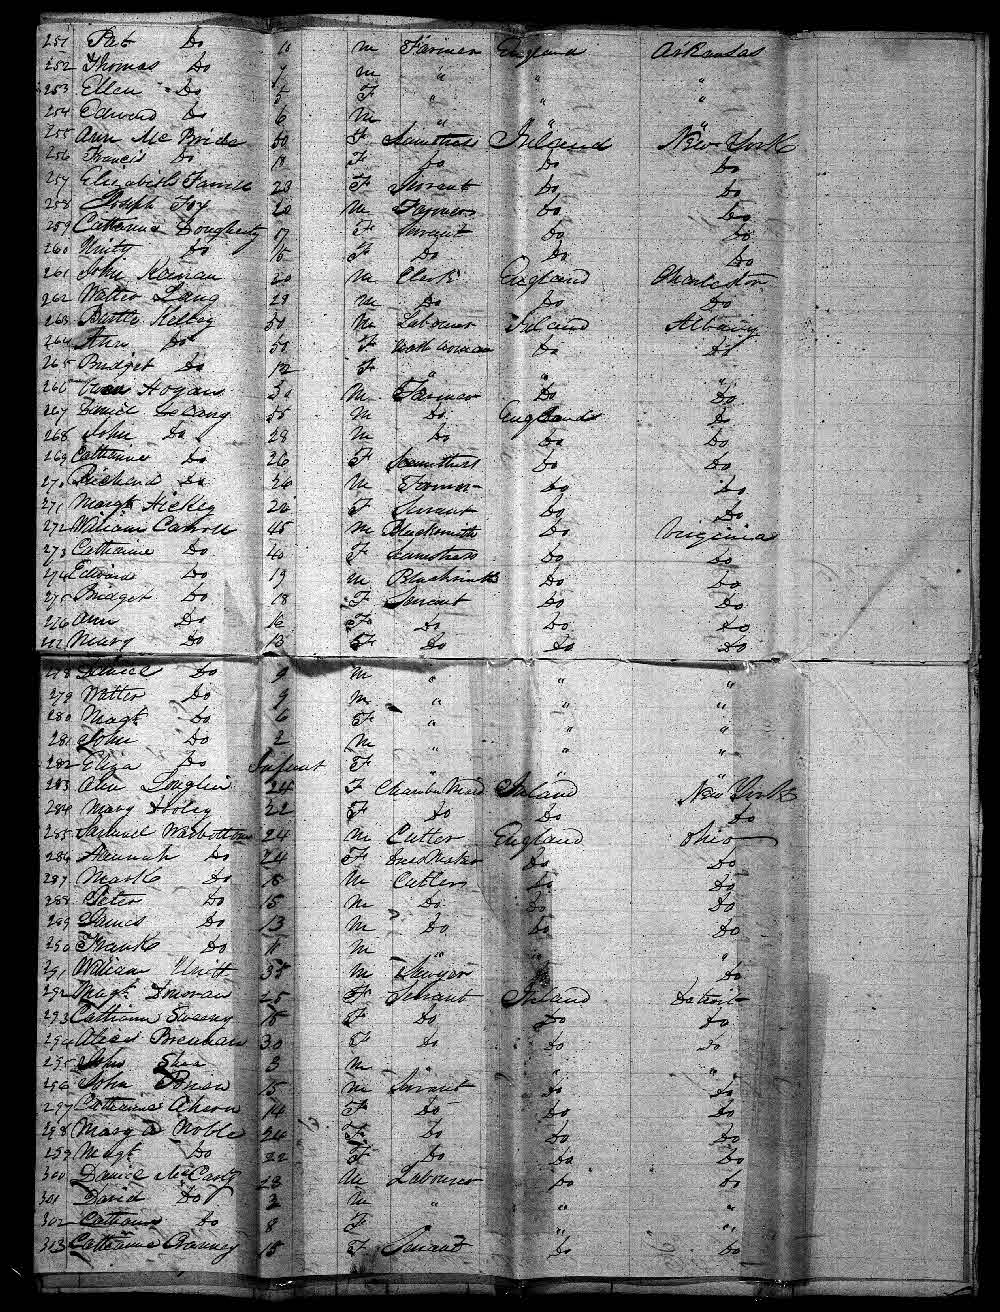 251 Pat Do 10 M Farmer England Arkansas
252 Thomas Do 7 M " " "
253 Ellen Do 5 F " " "
254 Edward Do 6 M " " "
255 Ann Mc Bride 50 F Seamstress Ireland New York
256 Francis Do 18 F Do Do Do
257 Elizabeth Farrell 23 F Servant Do Do
258 Joseph Foy 20 M Farmers Do Do
259 Catharine Dougherty 17 F Servant Do Do
260 Unity Do 16 F Do Do Do
261 John Keenan 20 M Clerk England Charleston
262 Walter Lang 29 M Do Do Do
263 Kelley 50 M Labourer Ireland Albany
264 Ann Do 50 F Do Do
265 Bridget Do 12 F " " "
266 Hogan 50 M Farmer Do Do
267 Daniel 55 M Do England Do
268 John Do 28 M Do Do Do
269 Catharine Do 26 F Seamstress Do Do
270 Richard Do 26 M Farmer Do Do
271 Margt Hickey 20 F Servant Do Do
272 William Carroll 45 M Blacksmith Do Virginia
273 Catharine Do 40 F Seamstress Do Do
274 Edward Do 19 M Blacksmith Do Do
275 Bridget Do 18 F Servant Do Do
276 Ann Do 16 F Do Do Do
277 Mary Do 13 F Do Do Do
278 Daniel Do 9 M " " "
279 Walter Do 9 M " " "
280 Magt Do 6 F " " "
281 John Do 2 M " " "
282 Eliza Do Infant F " " "
283 Ann Loughlin 24 F Chamber Maid Ireland New York
284 Mary Dooley 22 F Do Do Do
285 Samuel Warbottom 24 M Cutler England Ohio
286 Hannah Do 24 F Dress Maker Do Do
287 Mark Do 18 M Cutlers Do Do
288 Peter Do 15 M Do Do Do
289 James Do 13 M Do Do Do
290 Frank Do 11 M " " "
291 William Unitt 35 M Sawyer Do
292 Magt Donovan 25 F Servant Ireland Detroit
293 Catharine Sweeny 18 F Do Do Do
294 Alice Brennan 30 F Do Do Do
295 John Shea 3 M " " "
296 John 15 M Servant Do Do
297 Catharine Ahern 14 F Do Do Do
298 Mary A Noble 24 F Do Do Do
299 Magt Do 22 F Do Do Do
300 Daniel McCarty 28 M Labourer Do Do
301 David Do 2 M " " "
302 Catharine Do 8 F " "
303 Catharine 18 F Servant Do Do